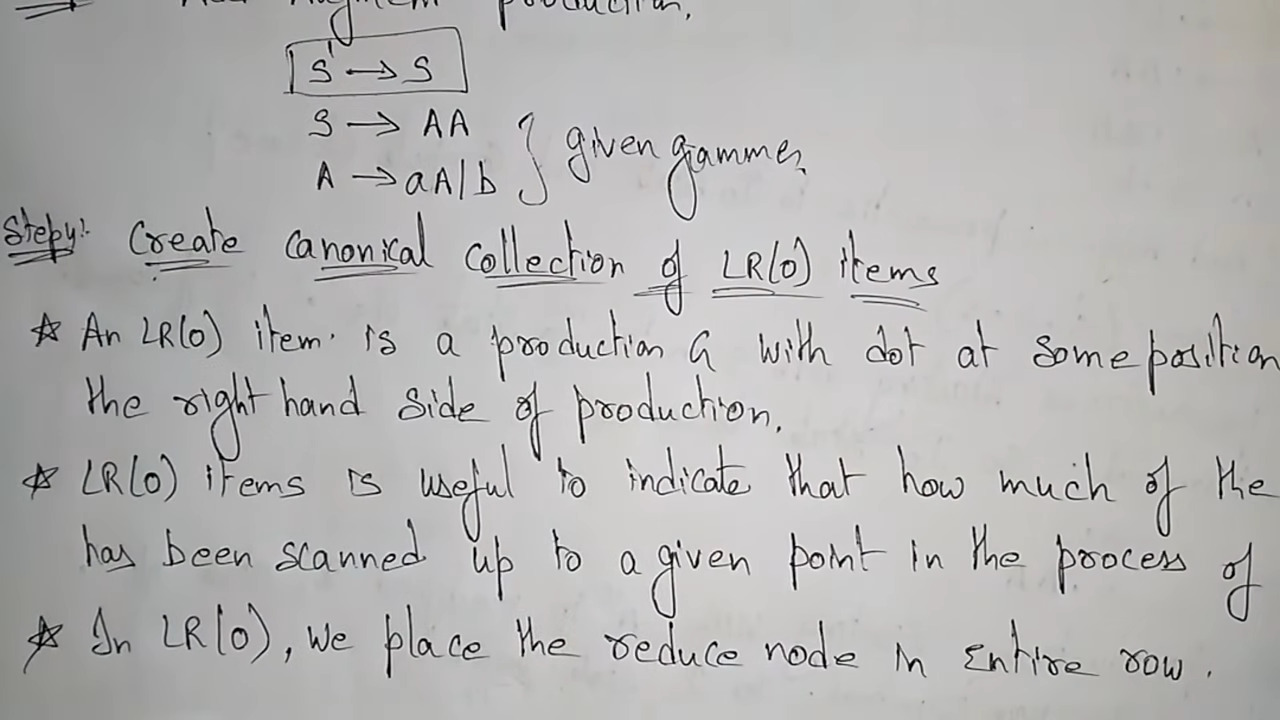 Add Augment production.
S' → S
S → AA
A → aA/b } given gammer
Step4:- Create canonical collection of LR(0) items
☆ An LR(0) item is a production G with dot at some position
the right hand side of production.
☆ LR(0) items is useful to indicate that how much of the
has been scanned up to a given point in the process of
☆ In LR(0), we place the reduce node in Entire row.